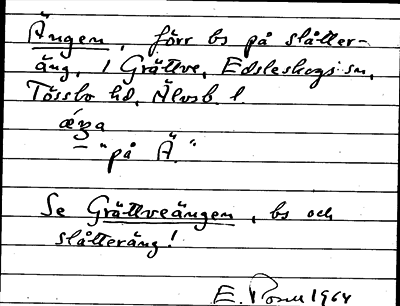 Ängen, förr bs på slåtter-
äng, i Grättve, Edsleskogs sn,
Tössbo hd, Älvsb. l.
— "på Ä."
Se Grättveängen, bs och
slåtteräng!
E. 1964